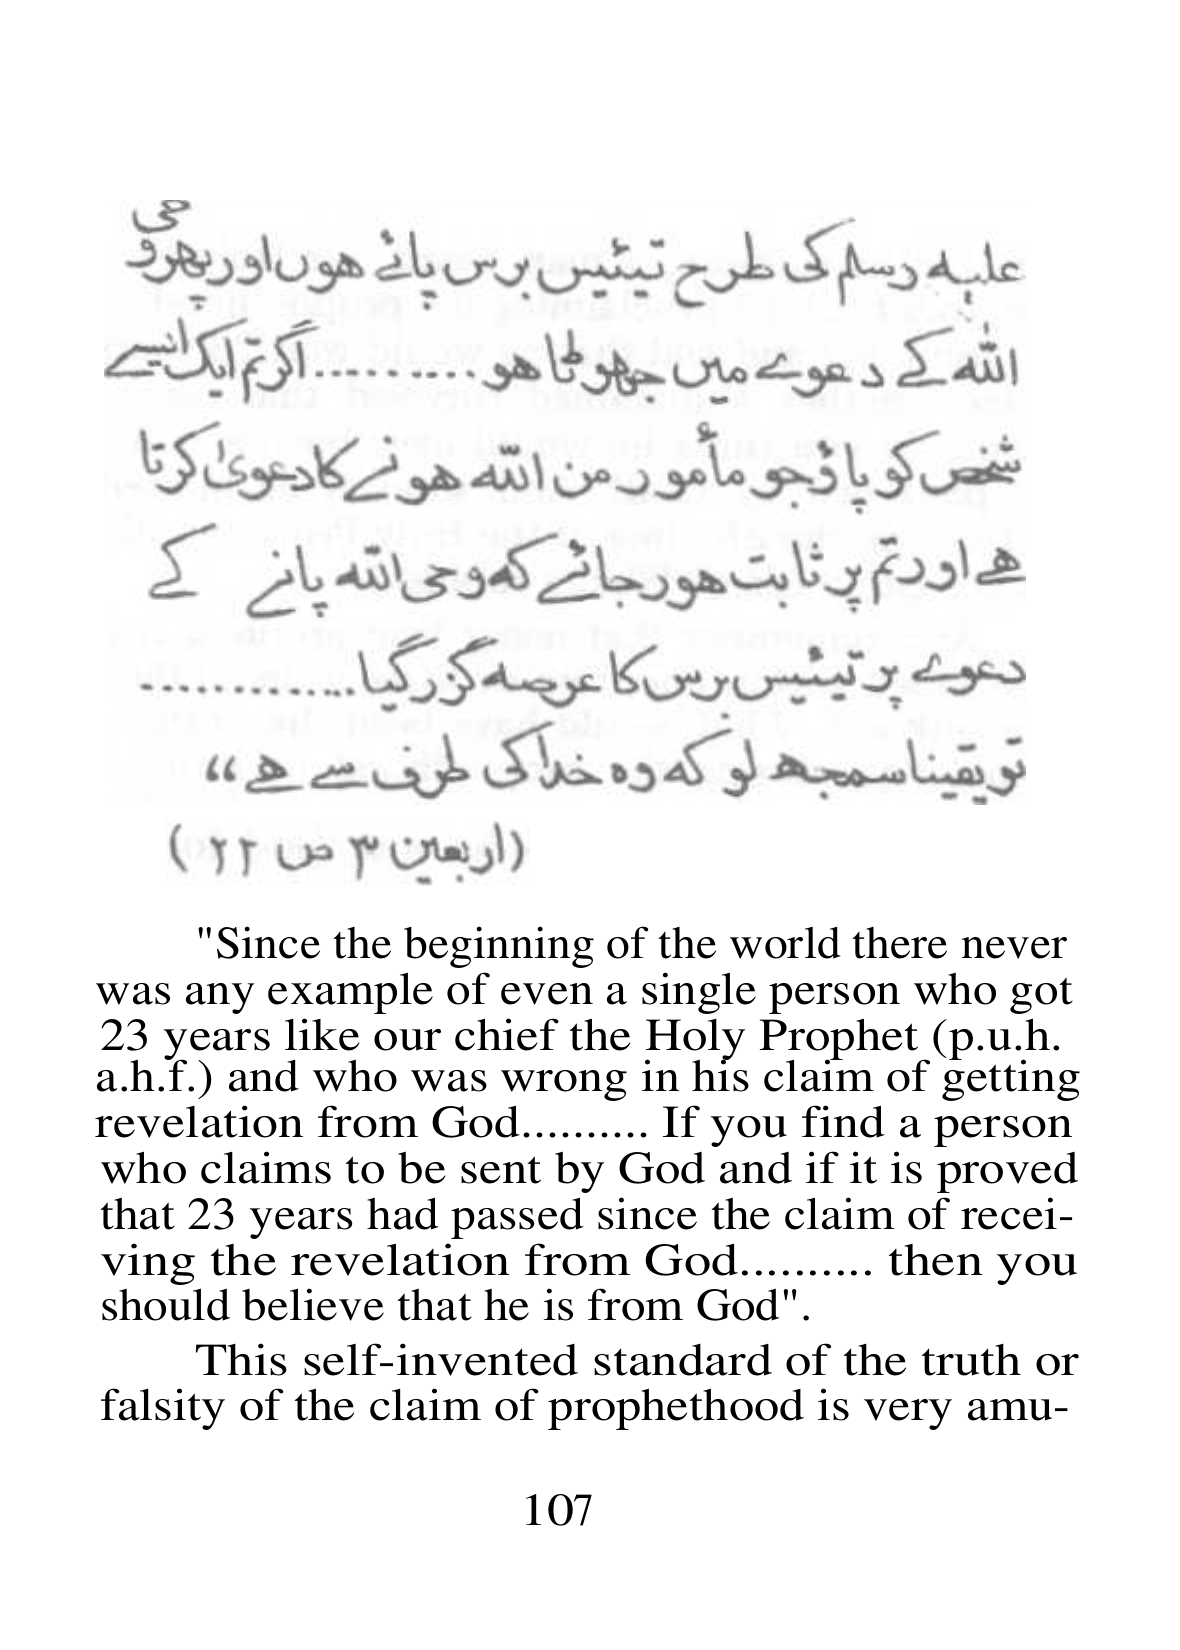 علیہ رسلم کی طرح تیئیس برس پائے ھوں اور پھر وحی
اللہ کے دعوے میں جھوٹا ھو..........اگر تم ایک ایسے
شخص کو پاؤ جو مأمور من اللہ ھونے کا دعویٰ کرتا
ھے اور تم پر ثابت ھور جائے کہ وحی اللہ پانے کے
دعوے پر تیئیس برس کا عرصہ گزر گیا............
تو یقینا سمجھ لو کہ وہ خدا کی طرف سے ھے“
(اربعین ۳ ص ۲۲)
"Since the beginning of the world there never
was any example of even a single person who got
23 years like our chief the Holy Prophet (p.u.h.
a.h.f.) and who was wrong in his claim of getting
revelation from God.......... If you find a person
who claims to be sent by God and if it is proved
that 23 years had passed since the claim of recei-
ving the revelation from God.......... then you
should believe that he is from God".
This self-invented standard of the truth or
falsity of the claim of prophethood is very amu-
107